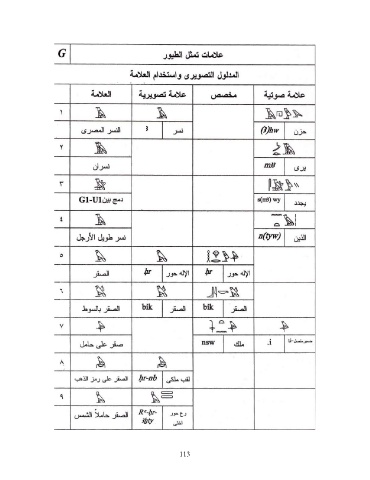 علامات تمثل الطيور G
المدلول التصويرى واستخدام العلامة
العلامة علامة تصويرية مخصص علامة صوتية
١
النسر المصرى نسر 3 حزن
٢
نسران يرى
٣
دمج بين G1-U1 يجدد
٤
نسر طويل الأرجل الذين n(tyw)
٥
الصقر الإله حور ḥr الإله حور ḥr
٦
الصقر بالسوط الصقر bik الصقر bik
٧
صقر على حامل ملك nsw .i
٨
الصقر على رمز الذهب لقب ملكى ḥr-nb
٩
الصقر حاملاً الشمس رع حور
113